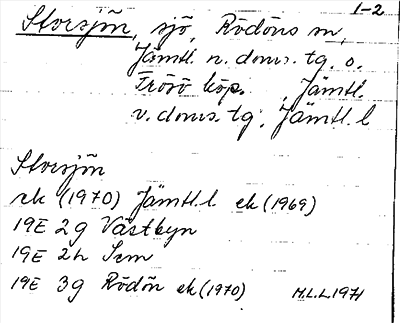 1-2
Storsjön, sjö, Rödöns sn,
Jämtl. n. doms. tg. o.
Frösö köp. , Jämtl.
v. doms. tg., Jämtl. l
Storsjön
rek (1970) Jämtl. l ek (1969)
19E 2g Västbyn
19E 2h
19E 3g Rödön ek (1970) M.L.L 1971